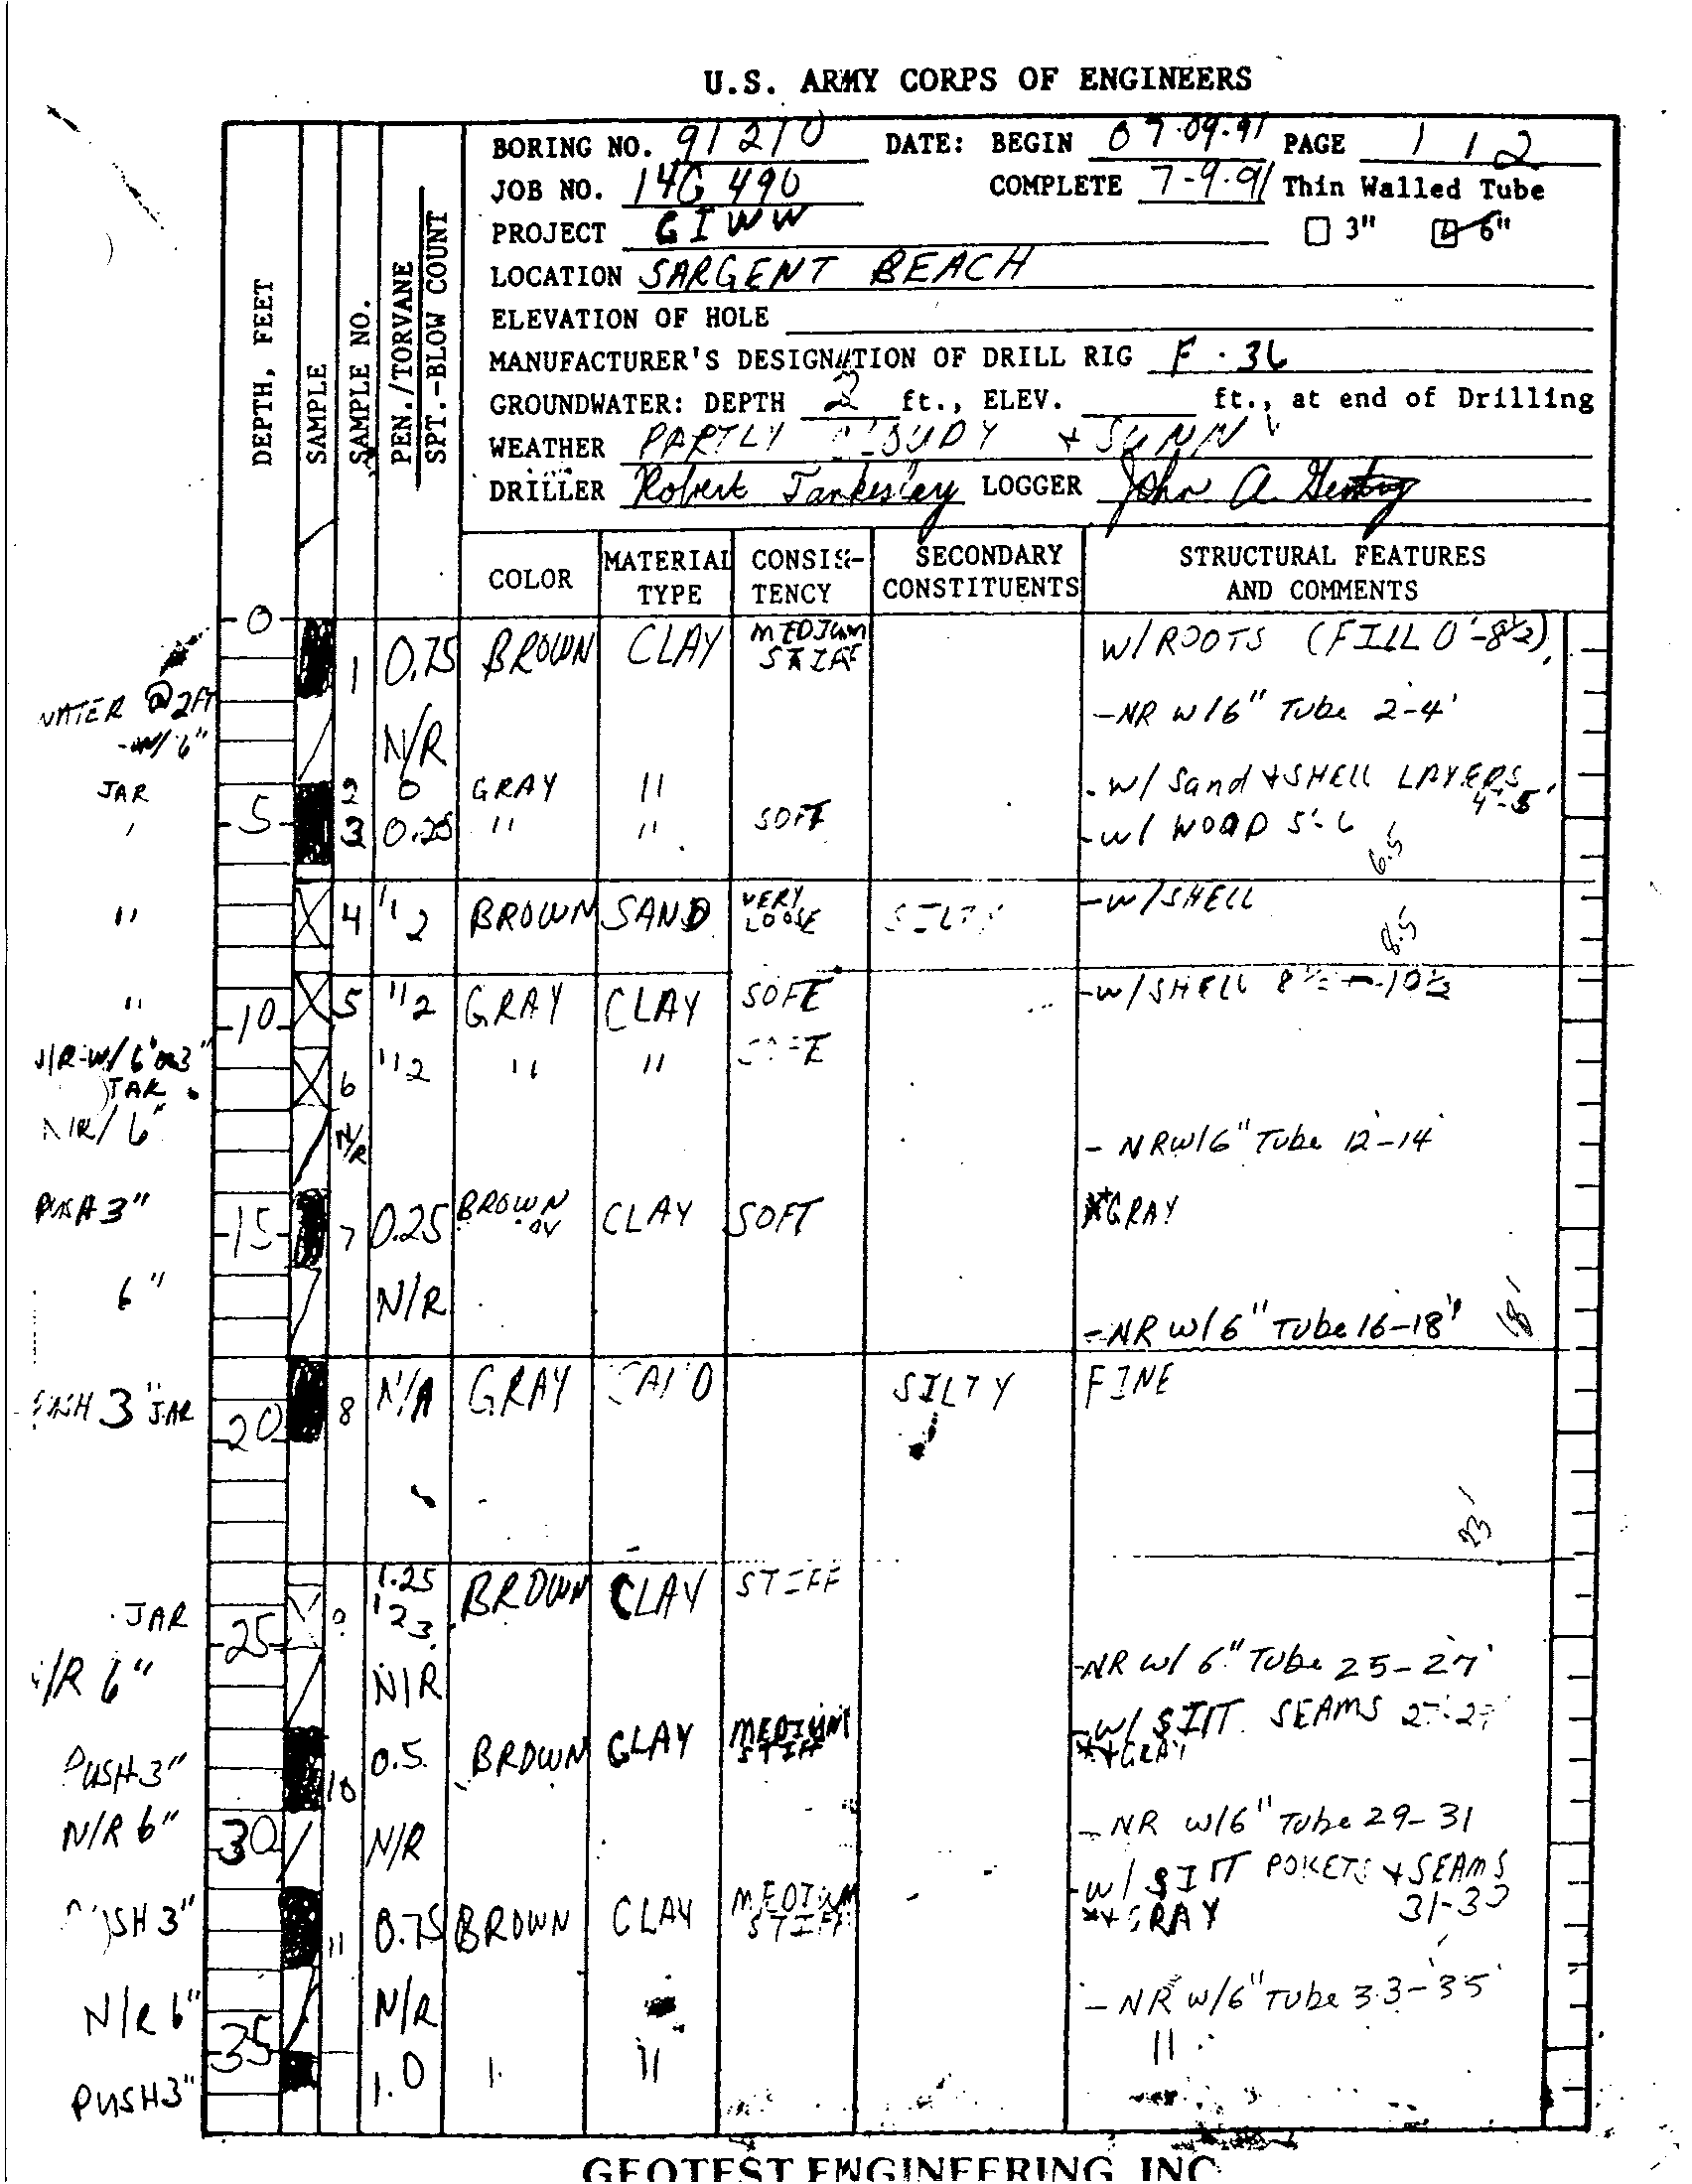 U.S. ARMY CORPS OF ENGINEERS
BORING NO. 91210 DATE: BEGIN 07.09.91 PAGE 1 / 2
JOB NO. 14G 490 COMPLETE 7-9-91 Thin Walled Tube
PROJECT GIWW 3" 6"
LOCATION SARGENT BEACH
ELEVATION OF HOLE
MANUFACTURER'S DESIGNATION OF DRILL RIG F.36
GROUNDWATER: DEPTH 2 ft., ELEV. ft., at end of Drilling
WEATHER PARTLY CLOUDY + SUNNY
DRILLER Robert Tankesley LOGGER John A.
DEPTH, FEET
SAMPLE
SAMPLE NO.
PEN./TORVANE
SPT.-BLOW COUNT
COLOR MATERIAL TYPE CONSIS-TENCY SECONDARY CONSTITUENTS STRUCTURAL FEATURES AND COMMENTS
0
1 0.75 BROWN CLAY MEDIUM STIFF W/ROOTS (FILL 0'-8½)
WATER @ 2FT
-W/6" N/R -NR W/6" Tube 2-4'
JAR 2 0 GRAY " -W/ Sand + SHELL LAYERS 4'-5'
5 3 0.25 " " SOFT -W/ WOOD 5'-6 6.5
" 4 1 1 2 BROWN SAND VERY LOOSE SILTY -W/SHELL 8.5
" 10 5 1 1 2 GRAY CLAY SOFT -W/SHELL 8½-10½
N/R-W/6" or 3"
JAR 6 1 1 2 " " SOFT
N/R/6" N/R - NR W/6" Tube 12-14'
PUSH 3" 15 7 0.25 BROWN CLAY SOFT *GRAY
6" N/R -NR W/6" Tube 16-18' 18'
PUSH 3" JAR 20 8 N/A GRAY SAND SILTY FINE
23'
1.25 BROWN CLAY STIFF
JAR 25 9 1 2 3
N/R 6" N/R -NR W/ 6" Tube 25-27'
-W/ SILT SEAMS 27-29
PUSH 3" 10 0.5 BROWN CLAY MEDIUM STIFF **GRAY
N/R 6" 30 N/R -NR W/6" Tube 29-31
-W/ SILT POKETS + SEAMS 31-33
PUSH 3" 11 0.75 BROWN CLAY MEDIUM STIFF **GRAY
N/R 6" N/R -NR W/6" Tube 33-35'
35
PUSH 3" 1.0 " "
GEOTEST ENGINEERING, INC